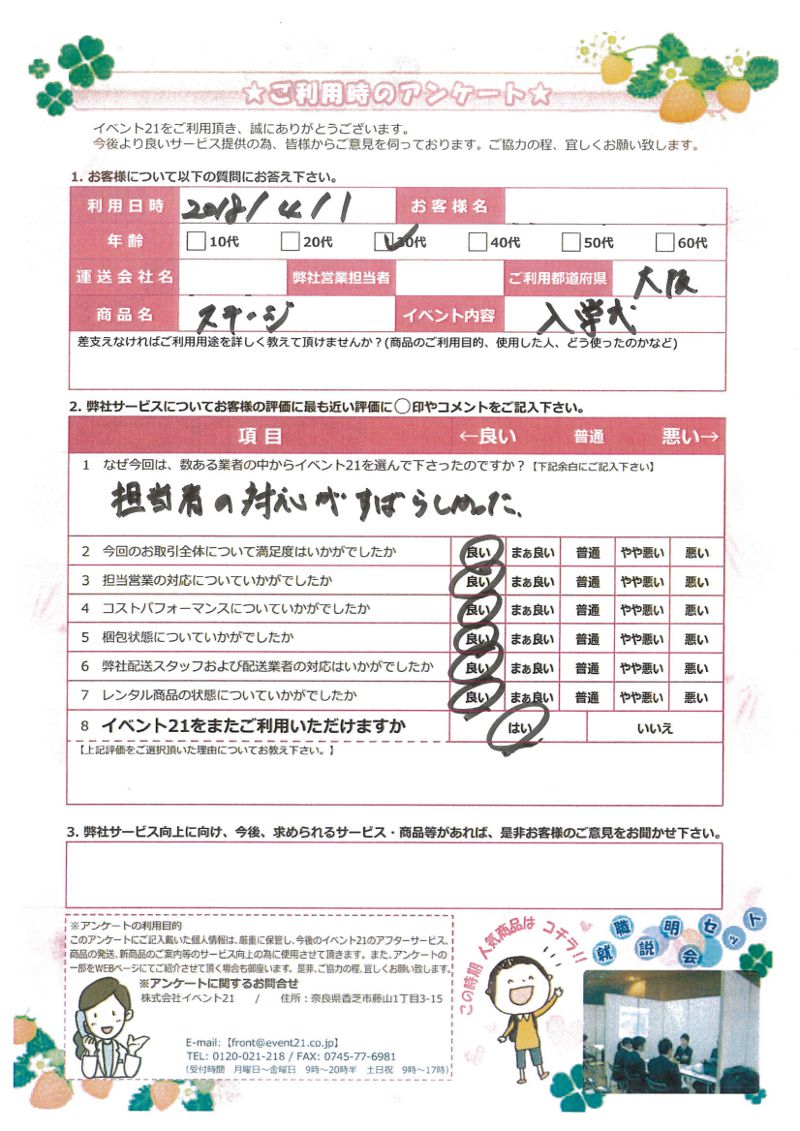 ★ご利用時のアンケート★
イベント21をご利用頂き、誠にありがとうございます。
今後より良いサービス提供の為、皆様からご意見を伺っております。ご協力の程、宜しくお願い致します。
1. お客様について以下の質問にお答え下さい。
利用日時 2018/4/1 お客様名
年齢 10代 20代 30代 40代 50代 60代
運送会社名 弊社営業担当者 ご利用都道府県 大阪
商品名 ステージ イベント内容 入学式
差支えなければご利用用途を詳しく教えて頂けませんか？(商品のご利用目的、使用した人、どう使ったのかなど)
2. 弊社サービスについてお客様の評価に最も近い評価に○印やコメントをご記入下さい。
項目 ←良い 普通 悪い→
1 なぜ今回は、数ある業者の中からイベント21を選んで下さったのですか？【下記余白にご記入下さい】
担当者の対応がすばらしかった、
2 今回のお取引全体について満足度はいかがでしたか 良い まぁ良い 普通 やや悪い 悪い
3 担当営業の対応についていかがでしたか 良い まぁ良い 普通 やや悪い 悪い
4 コストパフォーマンスについていかがでしたか 良い まぁ良い 普通 やや悪い 悪い
5 梱包状態についていかがでしたか 良い まぁ良い 普通 やや悪い 悪い
6 弊社配送スタッフおよび配送業者の対応はいかがでしたか 良い まぁ良い 普通 やや悪い 悪い
7 レンタル商品の状態についていかがでしたか 良い まぁ良い 普通 やや悪い 悪い
8 イベント21をまたご利用いただけますか はい いいえ
【上記評価をご選択頂いた理由についてお教え下さい。】
3. 弊社サービス向上に向け、今後、求められるサービス・商品等があれば、是非お客様のご意見をお聞かせ下さい。
※アンケートの利用目的
このアンケートにご記入戴いた個人情報は、厳重に保管し、今後のイベント21のアフターサービス、
商品の発送、新商品のご案内等のサービス向上の為に使用させて頂きます。また、アンケートの
一部をWEBページにてご紹介させて頂く場合も御座います。是非、ご協力の程、宜しくお願い致します。
※アンケートに関するお問合せ
株式会社イベント21 / 住所：奈良県香芝市藤山1丁目3-15
E-mail:【front@event21.co.jp】
TEL: 0120-021-218 / FAX: 0745-77-6981
(受付時間 月曜日～金曜日 9時～20時半 土日祝 9時～17時)
この時期 人気商品は コチラ!!
就職説明会セット